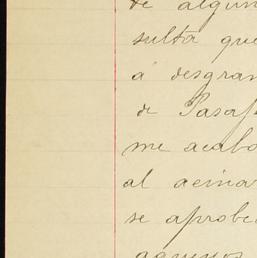 de algun
sulta que
á desgran
de Pasaj
me acabo
al acinar
se aprobe
aquenos